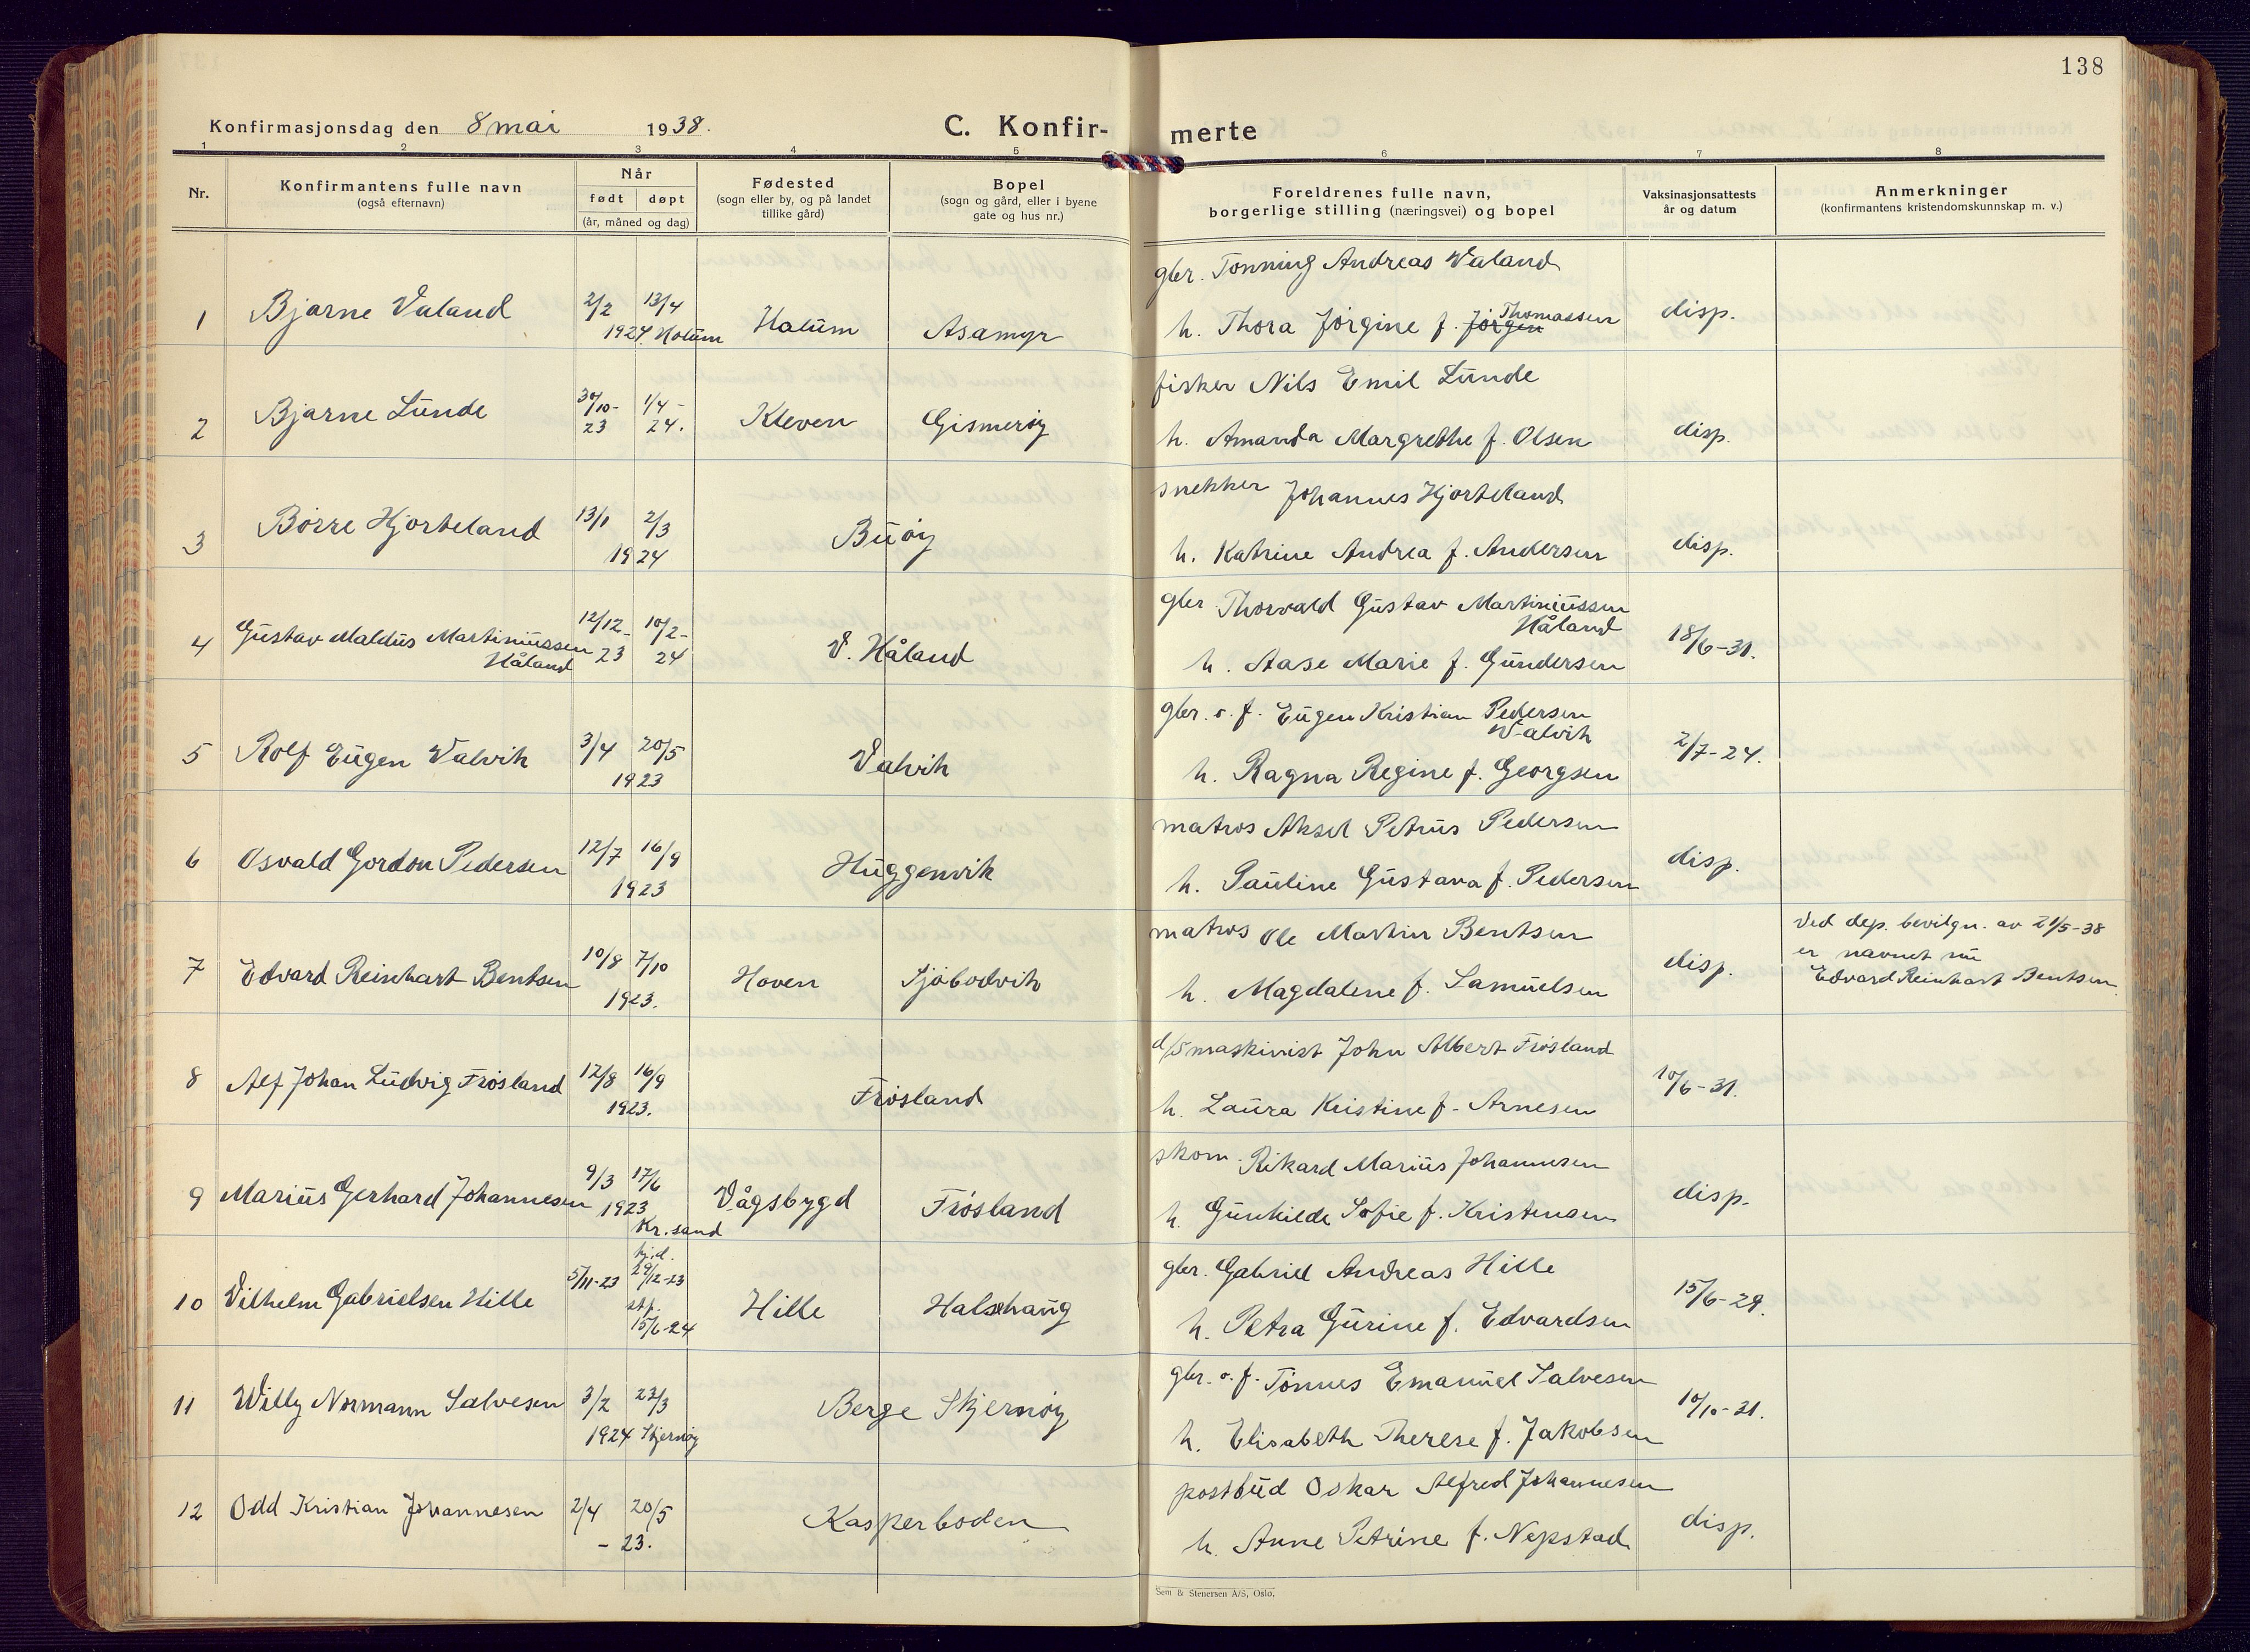 138
Konfirmasjonsdag den 8 mai 1938.
C. Konfir- merte
1 2 3 4 5 6 7 8
Nr.
Konfirmantens fulle navn
(også efternavn)
Når
født døpt
(år, måned og dag)
Fødested
(sogn eller by, og på landet
tillike gård)
Bopel
(sogn og gård, eller i byene
gate og hus nr.)
Foreldrenes fulle navn,
borgerlige stilling (næringsvei) og bopel
Vaksinasjonsattests
år og datum
Anmerkninger
(konfirmantens kristendomskunnskap m. v.)
gbr. Tønning Andreas Valand
1 Bjarne Valand 2/2 13/4 1924. Holum Halum Åsamyr
h. Thora Jørgine f. Jørgen Thomassen disp.
fisker Nils Emil Lunde
2 Bjarne Lunde 30/10-23 1/4-24. Kleven Gismerøy
h. Amanda Margrethe f. Olsen disp.
snekker Johannes Hjorteland
3 Børre Hjorteland 13/1 2/3 1924 Buøy
h. Katrine Andrea f. Andersen disp.
gbr. Thorvald Gustav Martiniussen
Håland
4 Gustav Maldus Martiniussen
Håland 12/12-23 10/2-24 V. Håland
h. Aase Marie f. Gundersen 18/6-31.
gbr. o. f. Eugen Kristian Pedersen
Valvik
5 Rolf Eugen Valvik 3/4 20/5 1923 Valvik
h. Ragna Regine f. Georgsen 2/7-24.
matros Aksel Petrus Pedersen
6 Osvald Gordon Pedersen 12/7 16/9 1923 Huggenvik
h. Pauline Gustava f. Pedersen disp.
matros Ole Martin Bentsen
7 Edvard Reinhart Bentsen 10/8 7/10 1923. Hoven Sjøbodvik
h. Magdalene f. Samuelsen disp.
Ved dep. bevilgn. av 21/5-38
er navnet nu
Edvard Reinhart Bentsen.
d/s maskinist John Albert Frøsland
8 Alf Johan Ludvig Frøsland 12/8 16/9 1923. Frøsland
h. Laura Kristine f. Arnesen 10/6-31.
skom. Rikard Marius Johannesen
9 Marius Gerhard Johannesen 9/3 17/6 1923 Kr.sand Vågsbygd Frøsland
h. Gunhilde Sofie f. Kristensen disp.
gbr. Gabriel Andreas Hille
10 Vilhelm Gabrielsen Hille 5/11-23 hj.d. 29/12-23 stf. 15/6-24 Hille Halsehaug
h. Petra Gurine f. Edvardsen 15/6-29.
gbr. o. f. Tønnes Emanuel Salvesen
11 Willy Normann Salvesen 3/2 23/3 1924 Skjernøy Berge Skjernøy
h. Elisabeth Therese f. Jakobsen 10/10-31.
postbud Oskar Alfred Johannesen
12 Odd Kristian Johannesen 2/4 20/5 - 23. Kasperboden
h. Anne Petrine f. Nepstad disp.
Sem & Stenersen A/S, Oslo.